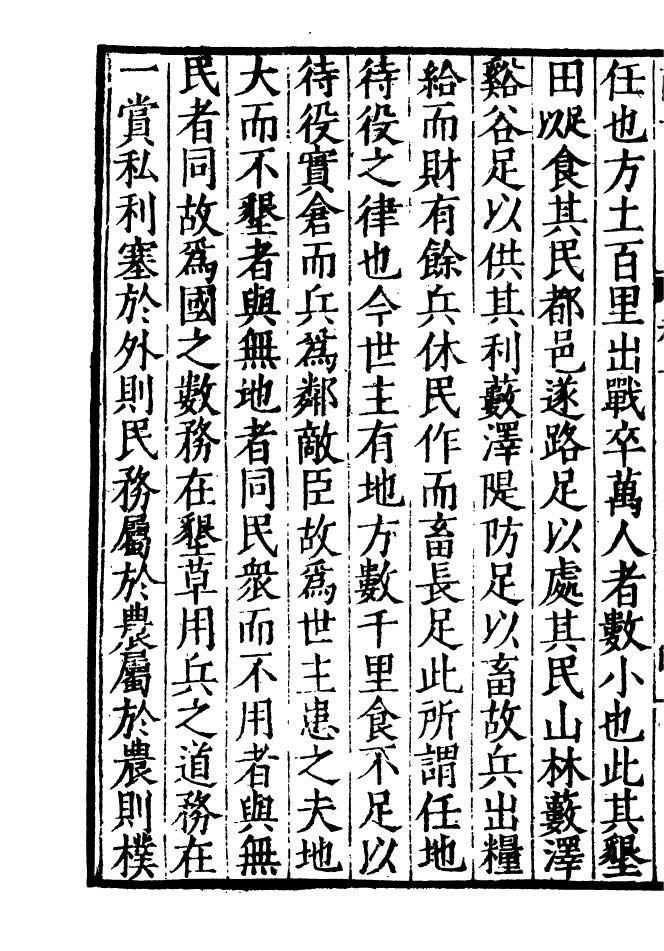 任也方土百里出戰卒萬人者數小也此其墾
田足以食其民都邑遂路足以處其民山林藪澤
谿谷足以供其利藪澤隄防足以畜故兵出糧
給而財有餘兵休民作而畜長足此所謂任地
待役之律也今世主有地方數千里食不足以
待役實倉而兵爲鄰敵臣故爲世主患之夫地
大而不墾者與無地者同民衆而不用者與無
民者同故爲國之數務在墾草用兵之道務在
一賞私利塞於外則民務屬於農屬於農則樸